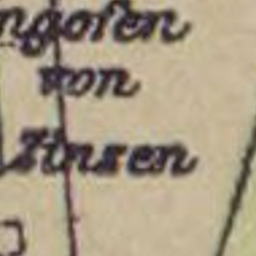 ngofen
von
Zinsen